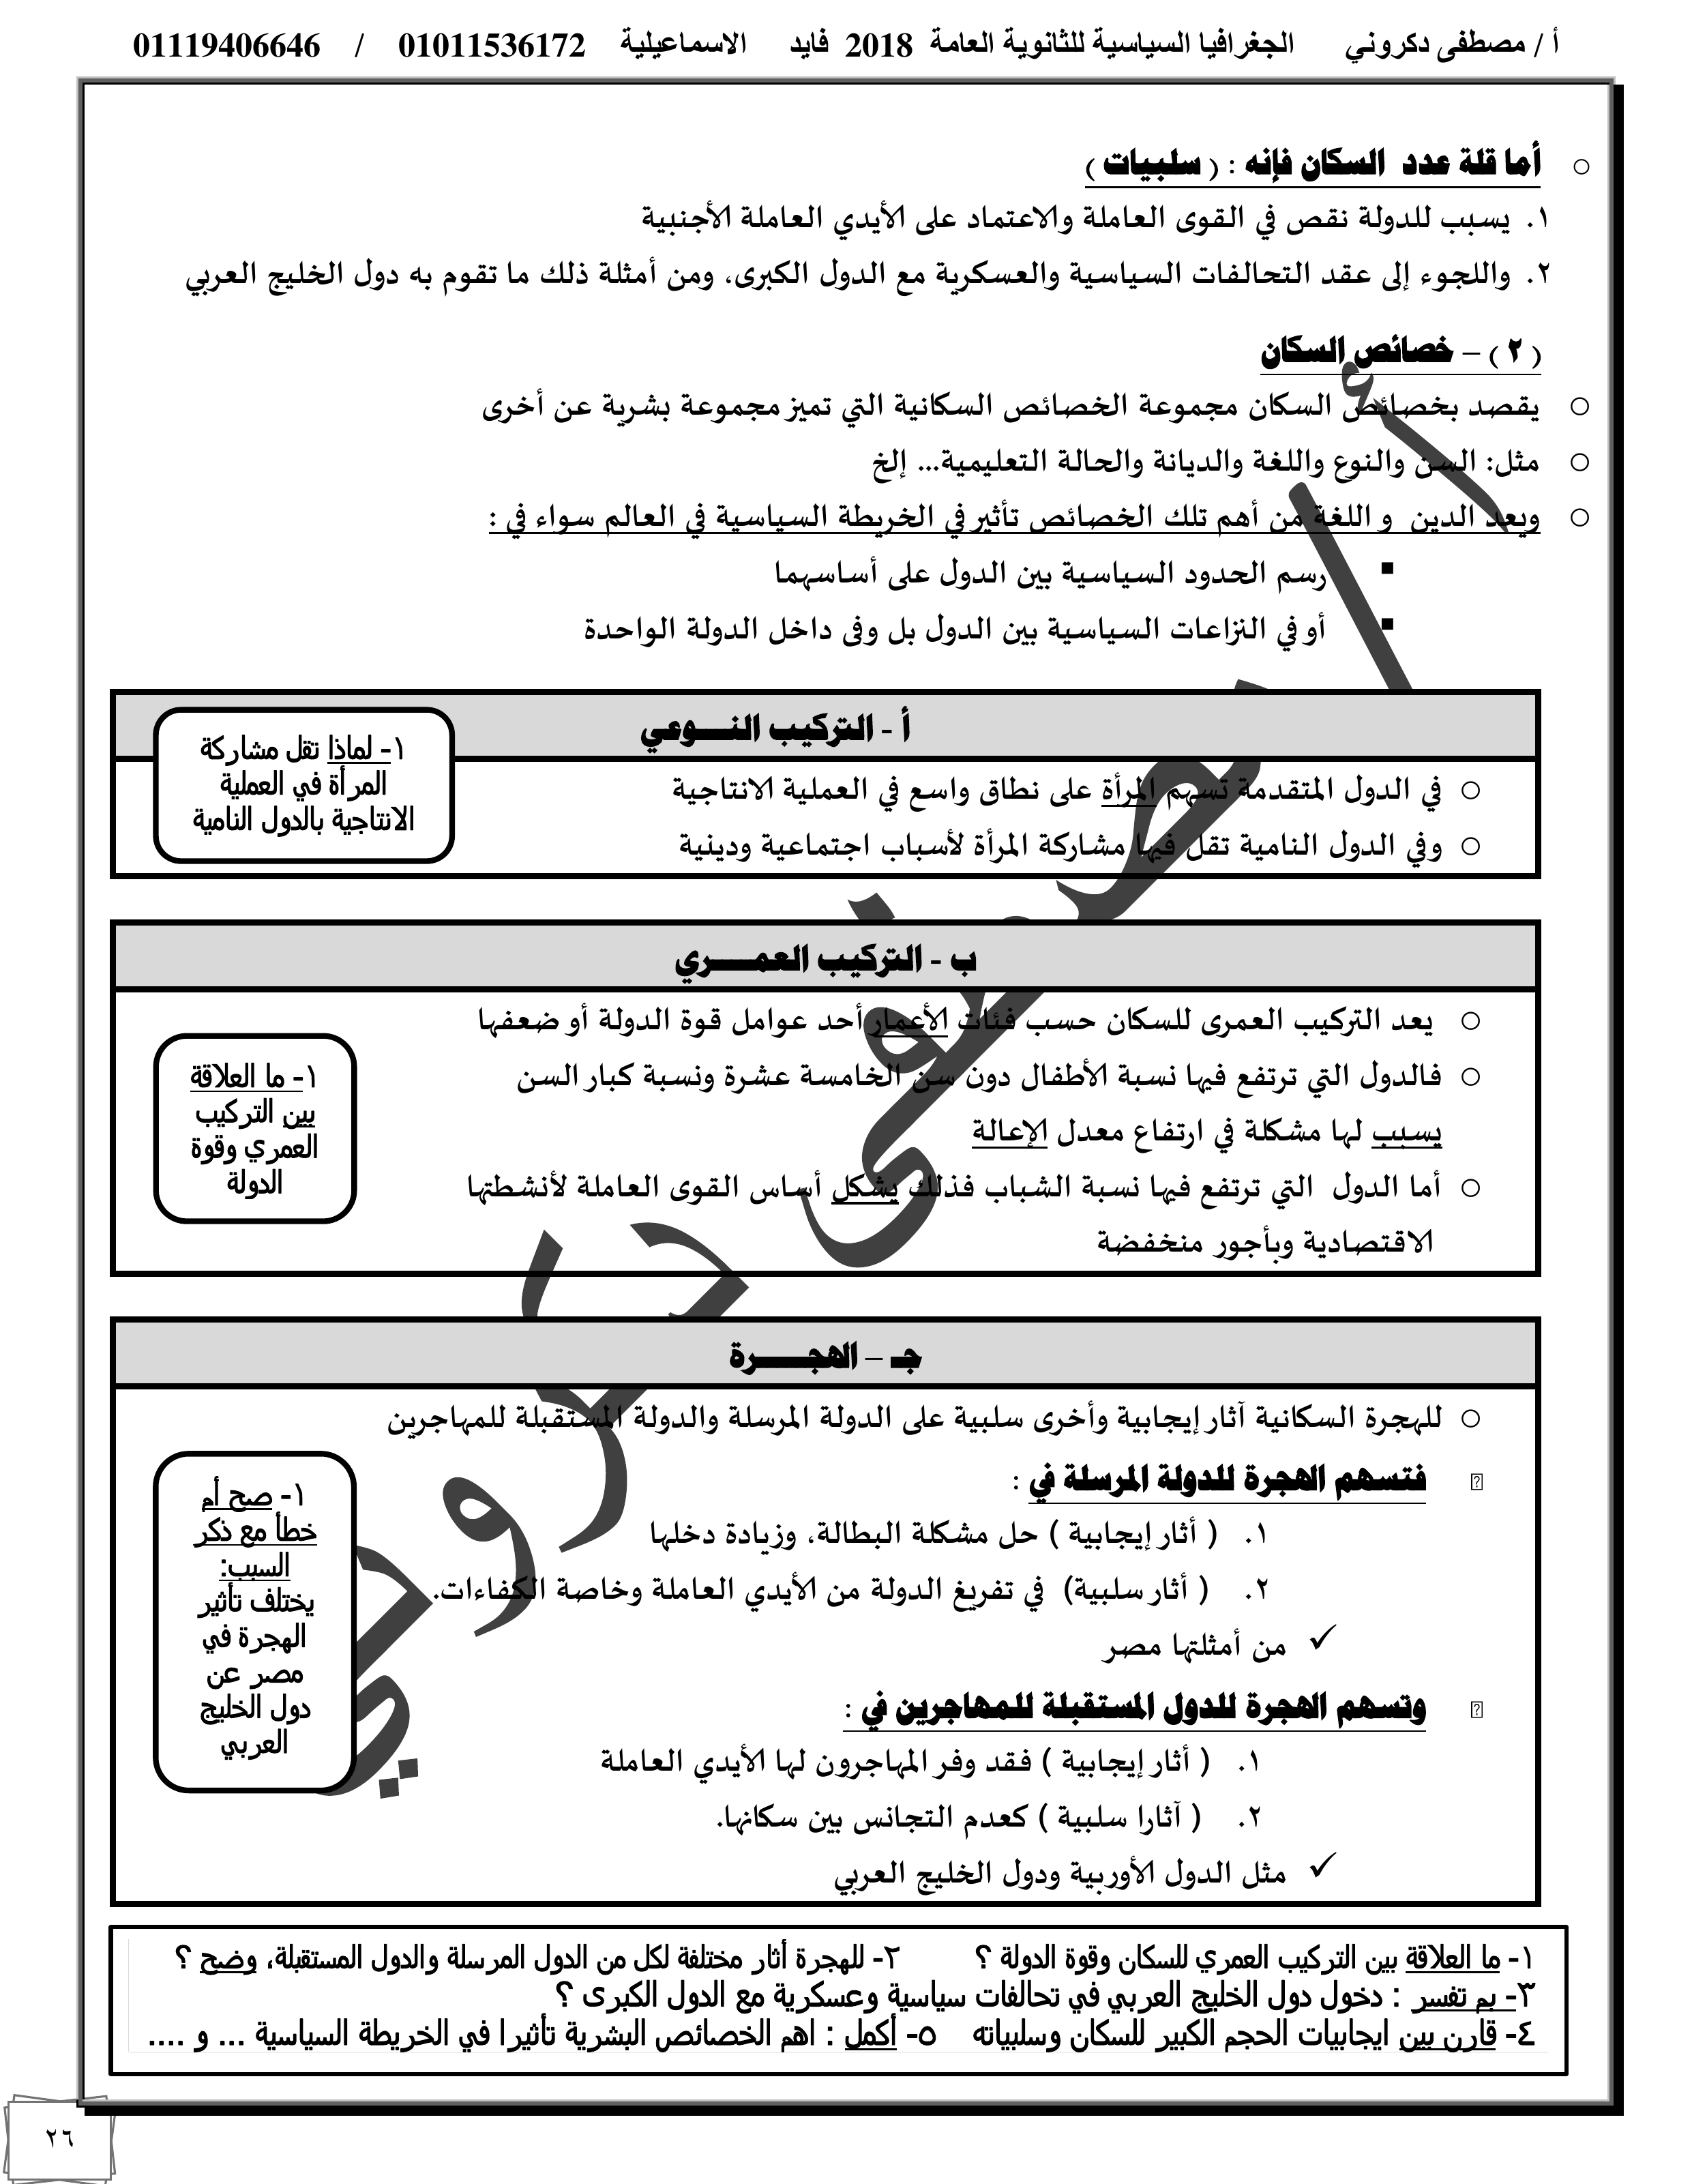 أ / مصطفى دكروني الجغرافيا السياسية للثانوية العامة 2018 فايد الاسماعيلية 01011536172 / 01119406646
أما قلة عدد السكان فإنه : ( سلبيات )
١. يسبب للدولة نقص في القوى العاملة والاعتماد على الأيدي العاملة الأجنبية
٢. واللجوء إلى عقد التحالفات السياسية والعسكرية مع الدول الكبرى، ومن أمثلة ذلك ما تقوم به دول الخليج العربي
( ٢ ) – خصائص السكان
يقصد بخصائص السكان مجموعة الخصائص السكانية التي تميز مجموعة بشرية عن أخرى
مثل: السن والنوع واللغة والديانة والحالة التعليمية... إلخ
ويعد الدين و اللغة من أهم تلك الخصائص تأثير في الخريطة السياسية في العالم سواء في :
رسم الحدود السياسية بين الدول على أساسهما
أو في النزاعات السياسية بين الدول بل وفى داخل الدولة الواحدة
أ - التركيب النـــوعي
في الدول المتقدمة تسهم المرأة على نطاق واسع في العملية الانتاجية
وفي الدول النامية تقل فيها مشاركة المرأة لأسباب اجتماعية ودينية
١- لماذا تقل مشاركة
المرأة في العملية
الانتاجية بالدول النامية
ب - التركيب العمـــري
يعد التركيب العمرى للسكان حسب فئات الأعمار أحد عوامل قوة الدولة أو ضعفها
فالدول التي ترتفع فيها نسبة الأطفال دون سن الخامسة عشرة ونسبة كبار السن
يسبب لها مشكلة في ارتفاع معدل الإعالة
أما الدول التي ترتفع فيها نسبة الشباب فذلك يشكل أساس القوى العاملة لأنشطتها
الاقتصادية وبأجور منخفضة
١- ما العلاقة
بين التركيب
العمري وقوة
الدولة
جـ – الهجـــــرة
للهجرة السكانية آثار إيجابية وأخرى سلبية على الدولة المرسلة والدولة المستقبلة للمهاجرين
فتسهم الهجرة للدولة المرسلة في :
١. ( أثار إيجابية ) حل مشكلة البطالة، وزيادة دخلها
٢. ( أثار سلبية) في تفريغ الدولة من الأيدي العاملة وخاصة الكفاءات.
✓ من أمثلتها مصر
وتسهم الهجرة للدول المستقبلة للمهاجرين في :
١. ( أثار إيجابية ) فقد وفر المهاجرون لها الأيدي العاملة
٢. ( آثارا سلبية ) كعدم التجانس بين سكانها.
✓ مثل الدول الأوربية ودول الخليج العربي
١- صح أم
خطأ مع ذكر
السبب:
يختلف تأثير
الهجرة في
مصر عن
دول الخليج
العربي
١- ما العلاقة بين التركيب العمري للسكان وقوة الدولة ؟ ٢- للهجرة أثار مختلفة لكل من الدول المرسلة والدول المستقبلة، وضح ؟
٣- بم تفسر : دخول دول الخليج العربي في تحالفات سياسية وعسكرية مع الدول الكبرى ؟
٤- قارن بين ايجابيات الحجم الكبير للسكان وسلبياته ٥- أكمل : اهم الخصائص البشرية تأثيرا في الخريطة السياسية ... و ....
٢٦
أ / مصطفى دكروني